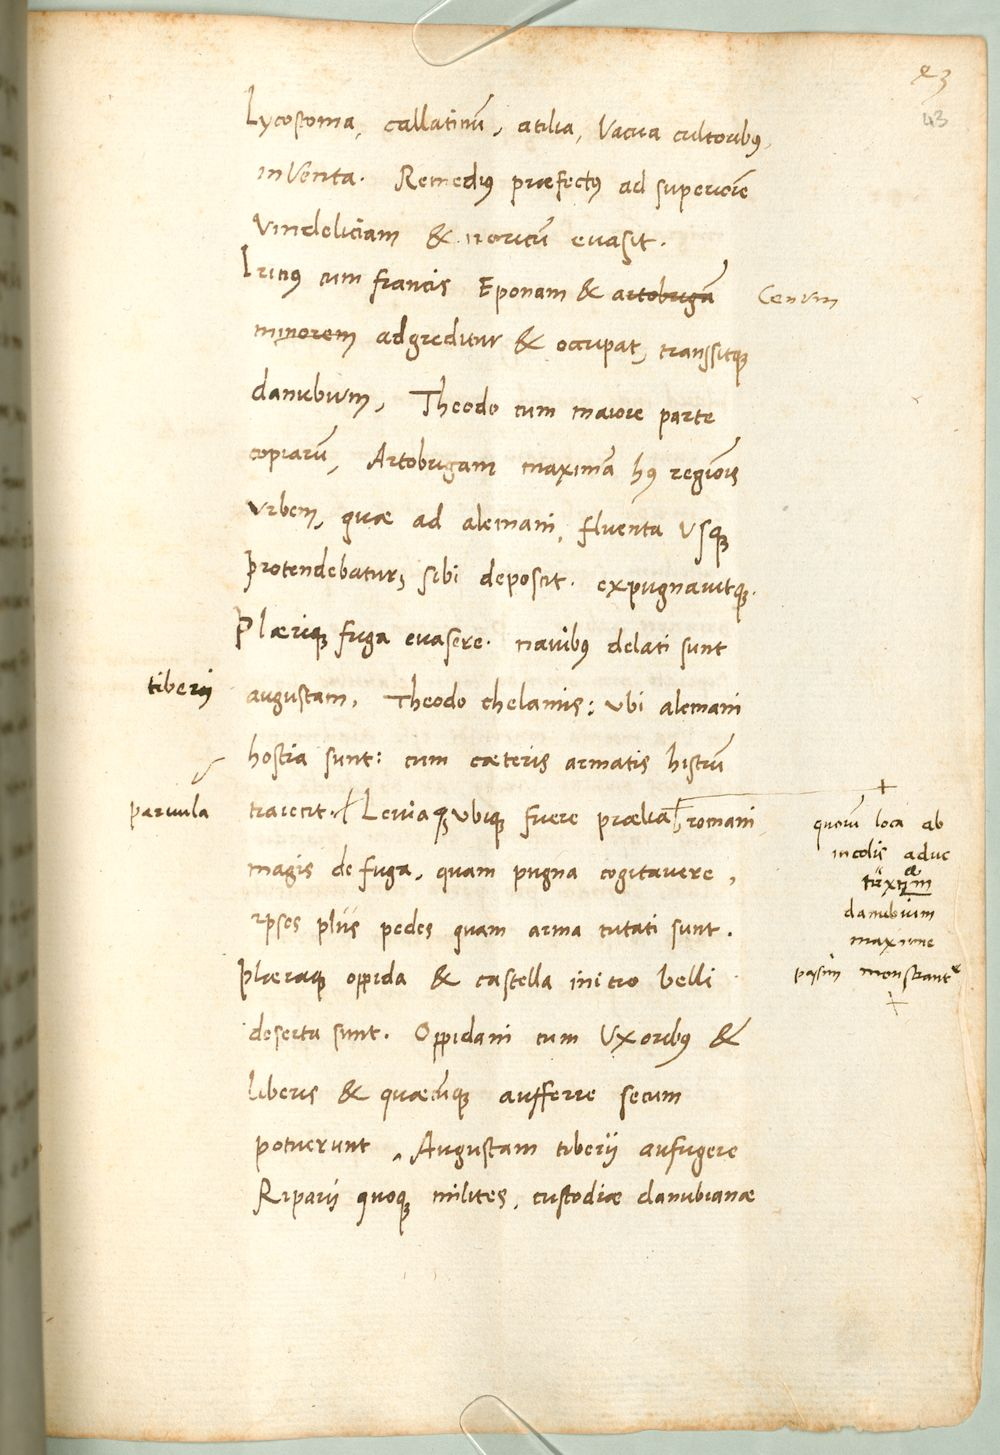 43
43
Lycostoma, callatinū, atilia, Vacua cultoribꝰ,
inVenta. Remediꝰ præfectꝰ ad superiorē
Vindeliciam & noricū euasit.
Iringꝰ cum francis Eponam & artobrigā Cenum
minorem adgreditur & occupat, transsitqꝫ
danubium, Theodo cum maiore parte
copiarū, Artobrigam maximā hꝰ regiōis
Vrbem, quæ ad alemani, fluenta Vsqꝫ
protendebatur, sibi deposcit. expugnauitqꝫ.
Plæriqꝫ fuga euasere. nauibꝰ delati sunt
tiberij augustam, Theodo chelamis: Vbi alemani
hostia sunt: cum cæteris armatis histrū
paruula traiecit. Leuiaqꝫ Vbiqꝫ fuere prælia romani
magis de fuga, quam pugna cogitauere,
ipsos plus pedes quam arma tutati sunt.
Plæraqꝫ oppida & castella initio belli
deserta sunt. Oppidani cum Vxoribꝰ &
liberis & quæcūqꝫ aufferre secum
potuerunt, Augustam tiberij aufugere
Riparij quoqꝫ milites, custodiæ danubianæ
quorū loca ab
incolis aduc
danubium
maxime
passim monstrant